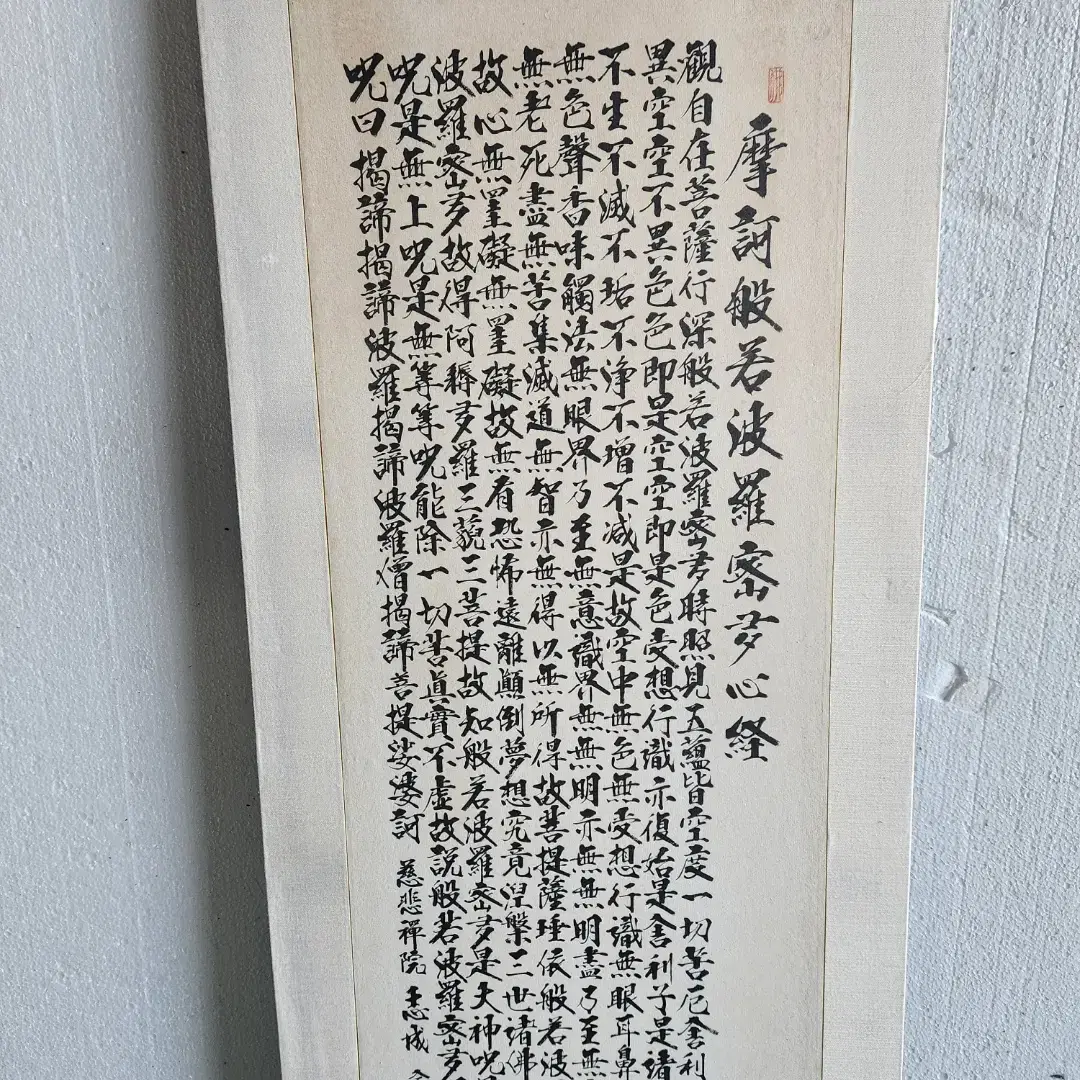 摩訶般若波羅密多心経
觀自在菩薩行深般若波羅密多時照見五蘊皆空度一切苦厄舍利
異空空不異色色即是空空即是色受想行識亦復如是舍利子是諸
不生不滅不垢不淨不增不減是故空中無色無受想行識無眼耳鼻
無色聲香味觸法無眼界乃至無意識界無無明亦無無明盡乃至無
無老死盡無苦集滅道無智亦無得以無所得故菩提薩埵依般若波
故心無罣礙無罣礙故無有恐怖遠離顛倒夢想究竟涅槃三世諸佛
波羅密多故得阿耨多羅三藐三菩提故知般若波羅密多是大神呪
呪是無上呪是無等等呪能除一切苦眞實不虛故說般若波羅密多
呪曰揭諦揭諦波羅揭諦波羅僧揭諦菩提娑婆訶
慈悲禪院